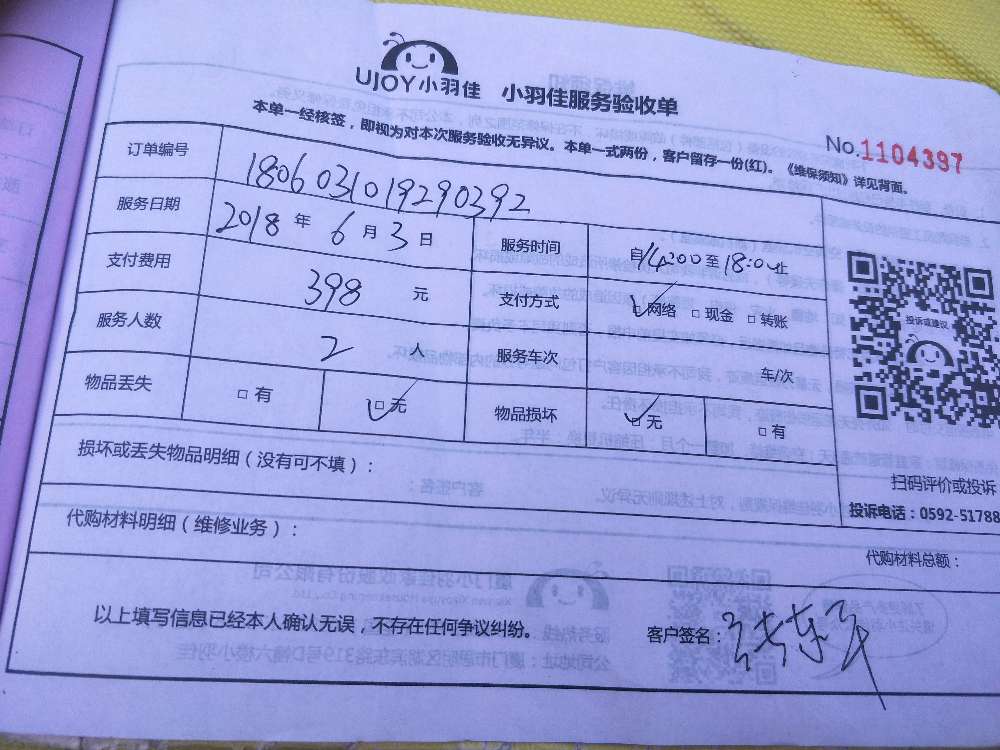 UJOY小羽佳 小羽佳服务验收单
本单一经核签，即视为对本次服务验收无异议。本单一式两份，客户留存一份(红)。《维保须知》详见背面。
No.1104397
订单编号 1806031019290392
服务日期 2018年6月3日 服务时间 自14:00至18:00止
支付费用 398元 支付方式 ☑网络 □现金 □转账
服务人数 2人 服务车次 车/次
物品丢失 □有 ☑无 物品损坏 ☑无 □有
投诉或建议
扫码评价或投诉
投诉电话：0592-51788
损坏或丢失物品明细（没有可不填）：
代购材料明细（维修业务）：
代购材料总额：
以上填写信息已经本人确认无误，不存在任何争议纠纷。
客户签名：